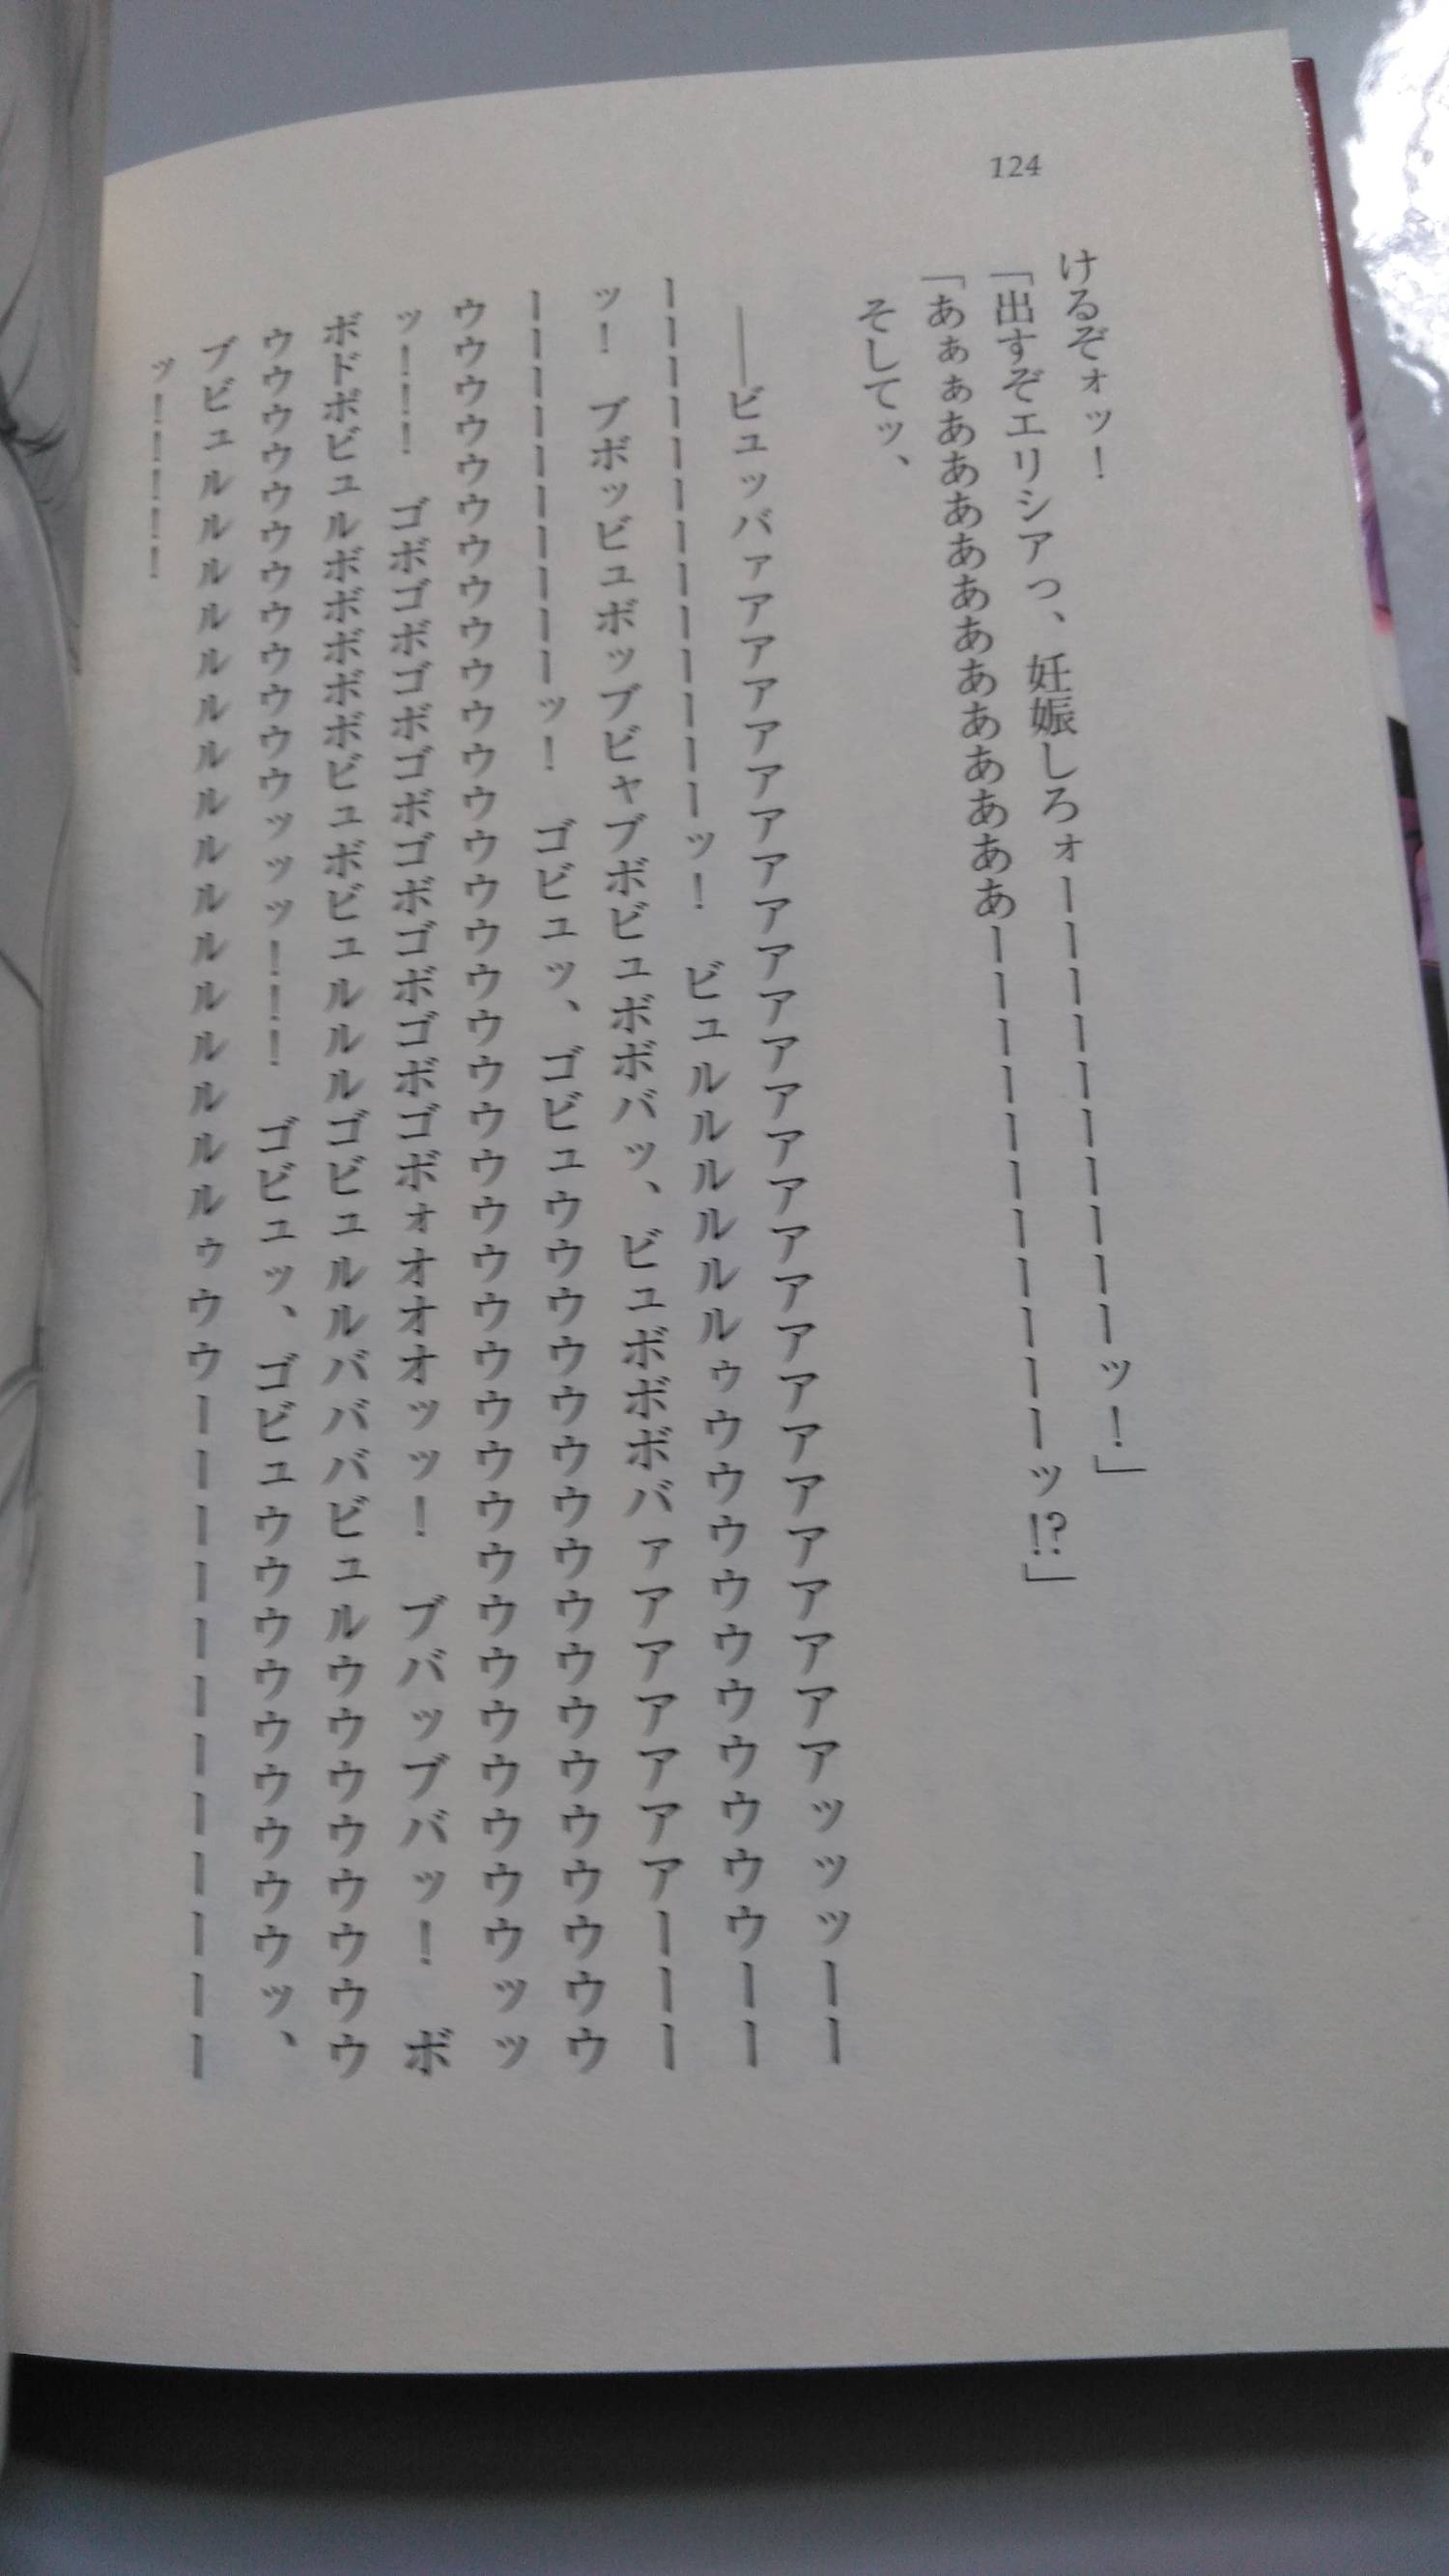 124
けるぞォッ！
「出すぞエリシアっ、妊娠しろォーーーーーーーーーーッ！」
「あぁぁああああああああああああーーーーーーーーーーーッ!?」
そしてッ、
――ビュッバァアアアアアアアアアアアアアアアアアアアアアアアアアアッッッーー
ーーーーーーーーーーーーーッ！　ビュルルルルルルゥウウウウウウウウウウーー
ッ！　ブボッビュボッブビャブボビュボボバッ、ビュボボボバァアアアアアアーーー
ーーーーーーーーーーッ！　ゴビュッ、ゴビュウウウウウウウウウウウウウウウウウ
ウウウウウウウウウウウウウウウウウウウウウウウウウウウウウウウウウウウウウッッ
ッ！！！　ゴボゴボゴボゴボゴボゴボゴボゴボォオオオッッ！　ブバッブバッ！　ボ
ボドボビュルボボボボボビュボビュルルルゴビュルルバババビュルウウウウウウウウ
ウウウウウウウウウウウウッッッ！！！　ゴビュッ、ゴビュウウウウウウウウウッ、
ブビュルルルルルルルルルルルルルルルルルゥウウーーーーーーーーーーーーー
ッ！！！！！